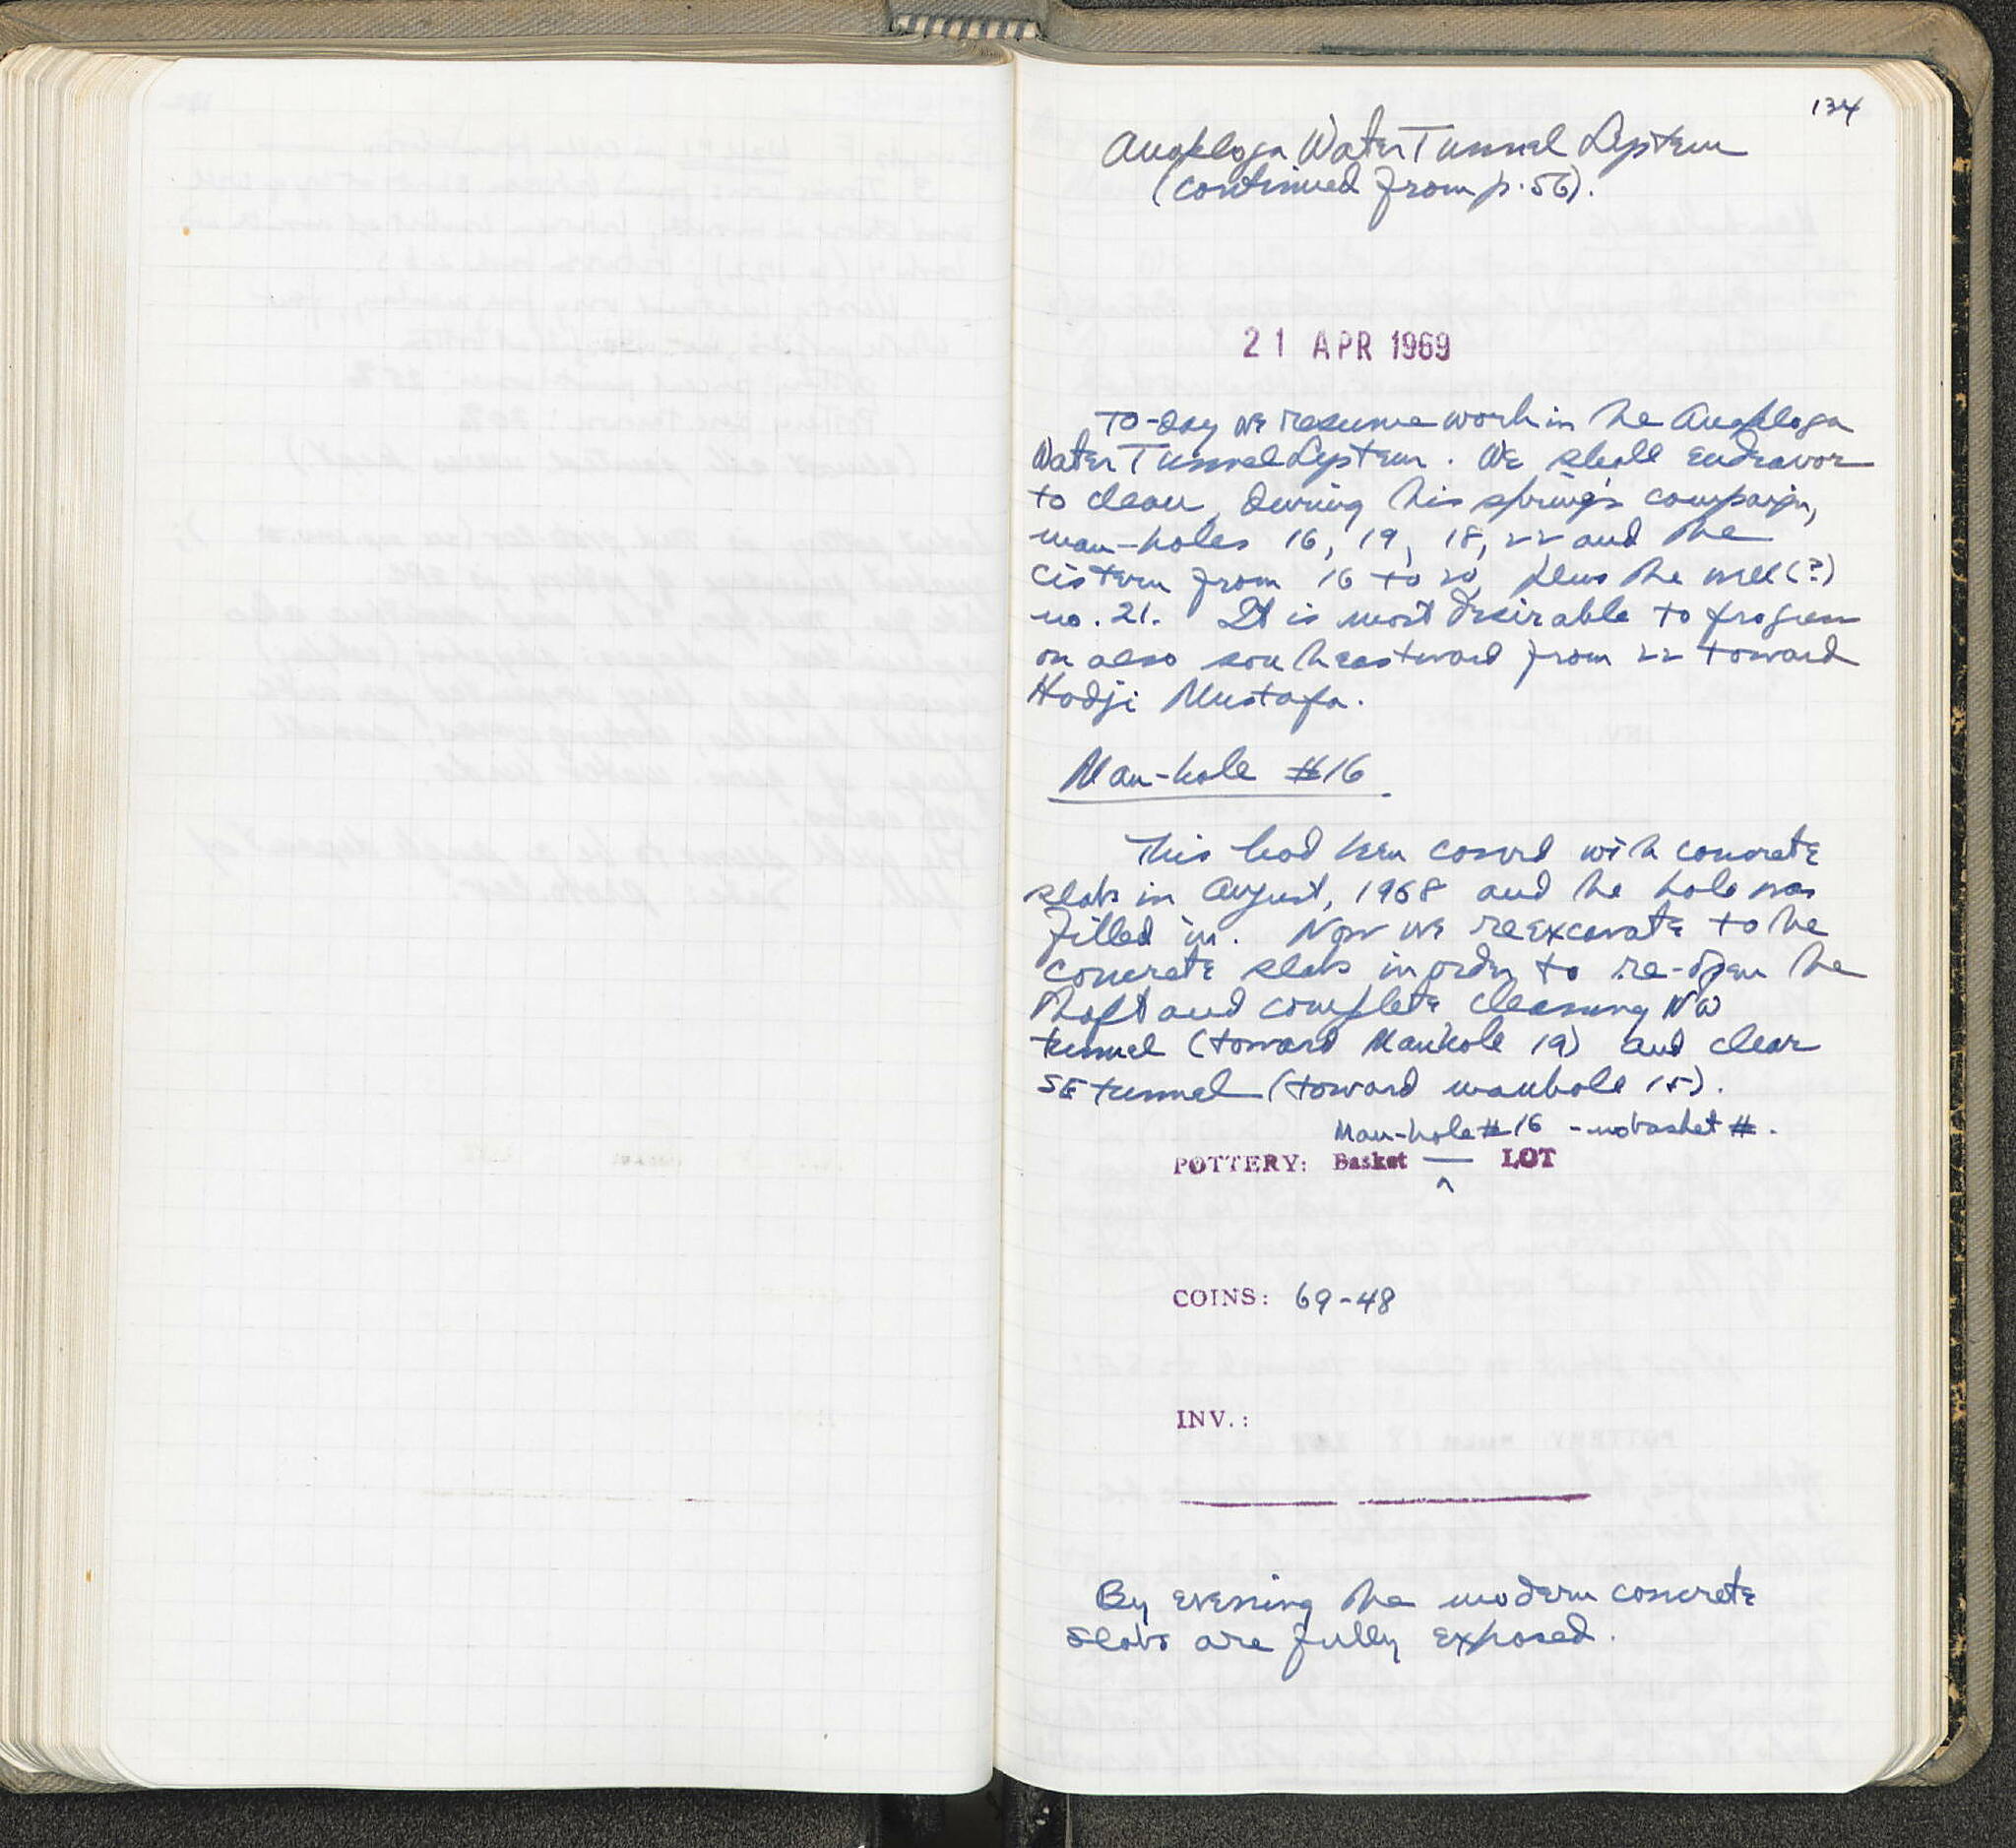 134
Anaploga Water Tunnel System
(continued from p. 56).
21 APR 1969
To-day we resume work in the Anaploga
Water Tunnel System. We shall endeavor
to clean, during this spring's campaign,
man-holes 16, 19, 18, 22 and the
cistern from 16 to 20, plus the well (?)
no. 21. It is most desirable to progress
on also southeastward from 22 toward
Hadji Mustafa.
Man-hole #16
This had been covered with concrete
slabs in August, 1968 and the hole was
filled in. Now we reexcavate to the
concrete slabs in order to re-open the
shaft and complete cleaning NW
tunnel (toward Manhole 19) and clear
SE tunnel (toward manhole 15).
Man-hole #16 - no basket #.
POTTERY: Basket — LOT
^
COINS: 69-48
INV.:
By evening the modern concrete
slabs are fully exposed.